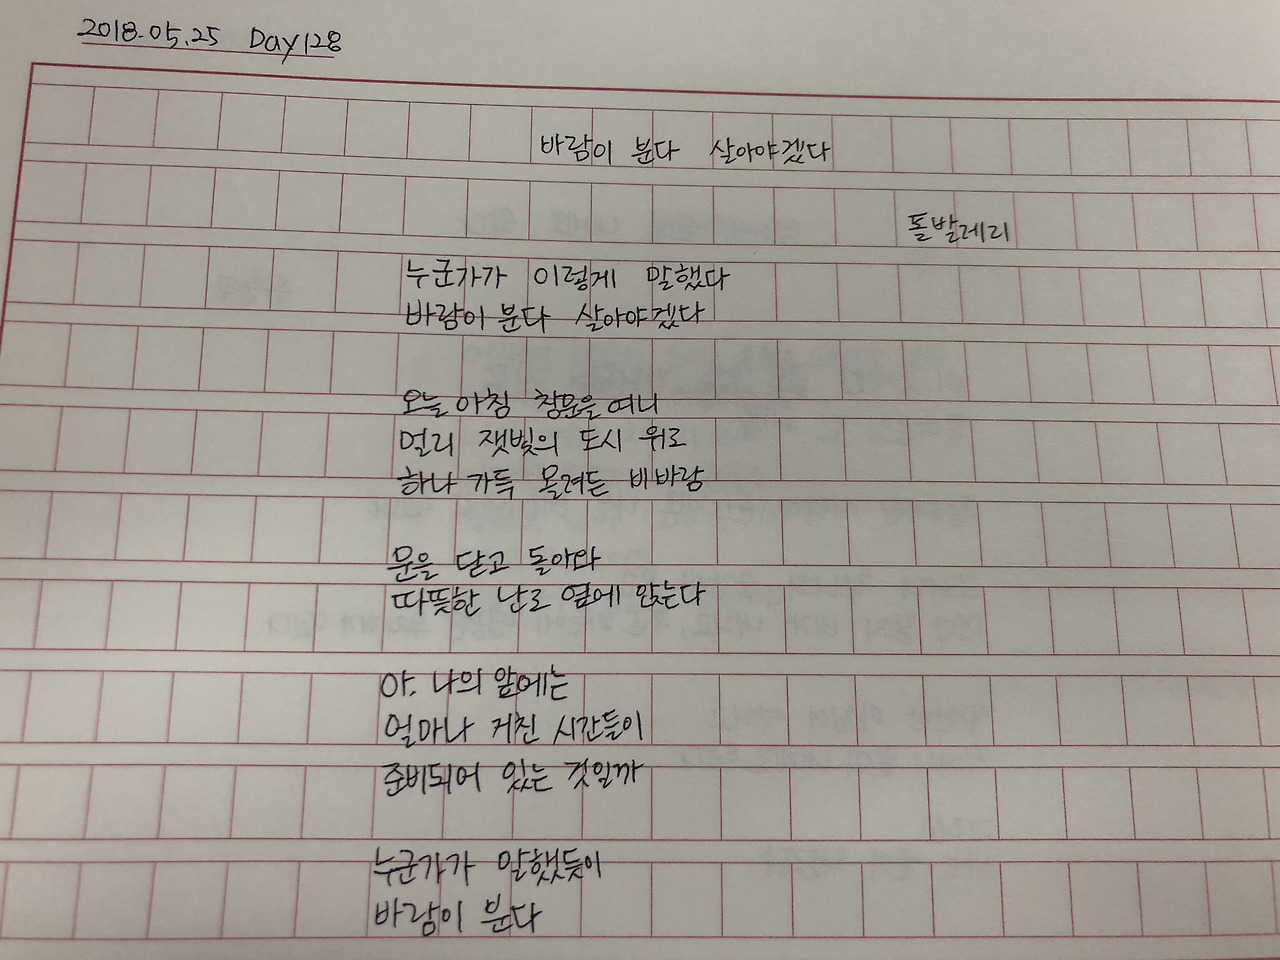 2018.05.25 Day128
바람이 분다 살아야겠다
폴발레리
누군가가 이렇게 말했다
바람이 분다 살아야겠다
오늘 아침 창문을 여니
멀리 잿빛의 도시 위로
하나 가득 몰려든 비바람
문을 닫고 돌아와
따뜻한 난로 옆에 앉는다
아. 나의 앞에는
얼마나 거친 시간들이
준비되어 있는 것일까
누군가가 말했듯이
바람이 분다